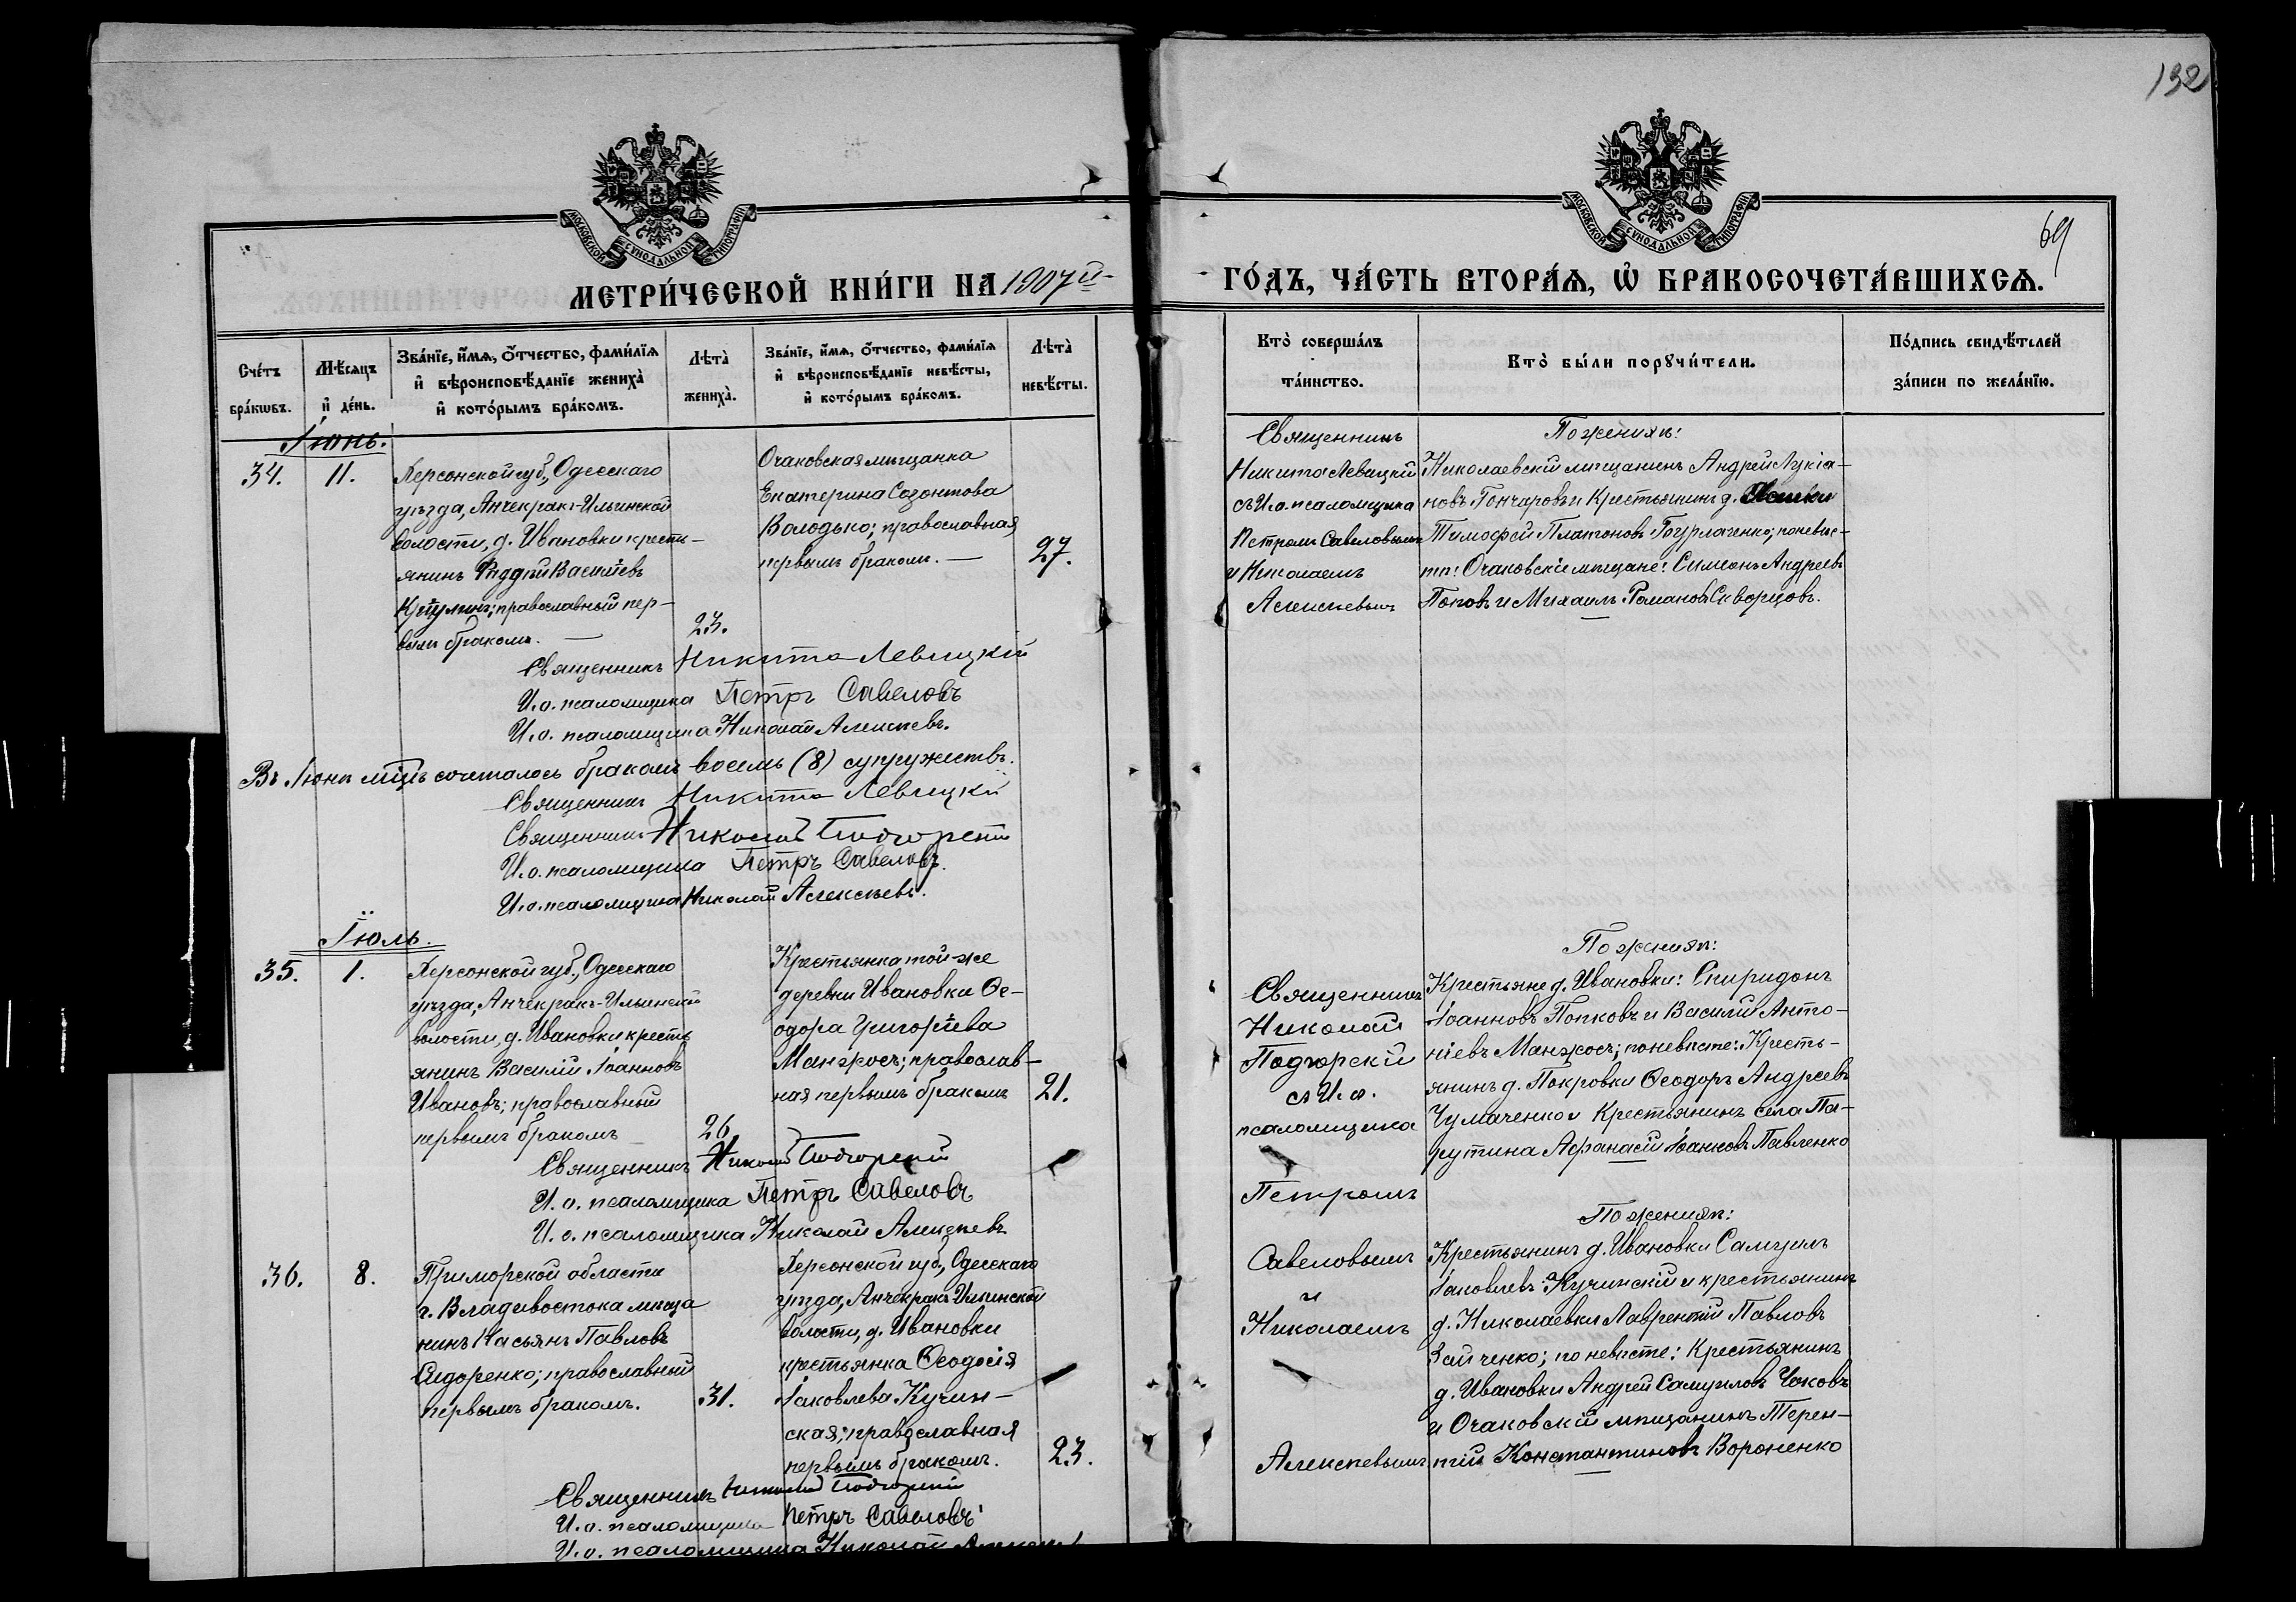 132
69
МОСКОВСКОЙ СѴНОДАЛЬНОЙ ТИПОГРАФІИ
МОСКОВСКОЙ СѴНОДАЛЬНОЙ ТИПОГРАФІИ
МЕТРИ́ЧЕСКОЙ КНИ́ГИ НА 1907й
ГО́ДЪ, ЧА́СТЬ ВТОРА́Ѧ, Ѡ҆ БРАКОСОЧЕТА́ВШИХСѦ.
Сче́тъ
бра́кѡвъ.
Мѣ́сѧцъ
и҆ де́нь.
Зва́нїе, и҆́мѧ, ѻ҆́тчество, фами́лїѧ
и҆ вѣроисповѣ́данїе жениха̀
и҆ кото́рымъ бра́комъ.
Лѣта̀
жениха̀.
Зва́нїе, и҆́мѧ, ѻ҆́тчество, фами́лїѧ
и҆ вѣроисповѣ́данїе невѣ́сты,
и҆ кото́рымъ бра́комъ.
Лѣта̀
невѣ́сты.
Кто̀ соверша́лъ
та́инство.
Кто̀ бы́ли порꙋчи́тели.
По́дпись свидѣ́телей
за́писи по жела́нїю.
Іюнь.
34.
11.
Херсонской губ., Одесскаго
уѣзда, Анчекракъ-Ильинской
волости, д. Ивановки кресть-
янинъ Василіевъ
православный пер-
вымъ бракомъ.
23.
Очаковская мѣщанка
Екатерина Созонтова
Володько; православная
первымъ бракомъ.
27.
Священникъ
Никита Левицкій
съ И.о. псаломщика
Петромъ Савеловымъ
и Николаемъ
Алексѣевымъ
По женихѣ:
Николаевскій мѣщанинъ Андрей Лукіа-
новъ Гончаровъ и Крестьянинъ д.
Тимофей Платоновъ Бурлаченко; по невѣс-
тѣ: Очаковскіе мѣщане: Симеонъ Андреевъ
Поповъ и Михаилъ Романовъ Скворцовъ.
Священникъ Никита Левицкій
И.о. псаломщика Петръ Савеловъ
И.о. псаломщика Николай Алексѣевъ.
Въ Іюнѣ мѣсцѣ сочеталось бракомъ восемь (8) супружествъ.
Священникъ Никита Левицкій
Священникъ Николай Подгорскій
И.о. псаломщика Петръ Савеловъ.
И.о. псаломщика Николай Алексѣевъ.
Іюль.
35.
1.
Херсонской губ., Одесскаго
уѣзда, Анчекракъ-Ильинской
волости, д. Ивановки кресть
янинъ Василій Іоанновъ
Ивановъ; православный
первымъ бракомъ
26
Крестьянка той-же
деревни Ивановки Ѳе-
одора Григоріева
Манжосъ; православ-
ная первымъ бракомъ
21.
Священникъ
Николай
Подгорскій
съ И.о.
псаломщика
Петромъ
Савеловымъ
и
Николаемъ
Алексѣевымъ
По женихѣ:
Крестьяне д. Ивановки: Спиридонъ
Іоанновъ Попковъ и Василій Анто-
ніевъ Манжосъ; по невѣсте: Кресть-
янинъ д. Покровки Ѳеодоръ Андреевъ
Чумаченко и Крестьянинъ села Па-
рутина Афанасій Іоанновъ Павленко
Священникъ Николай Подгорскій
И.о. псаломщика Петръ Савеловъ
И.о. псаломщика Николай Алексѣевъ
36.
8.
Приморской области
г. Владивостока мѣща
нинъ Касьянъ Павловъ
Сидоренко; православный
первымъ бракомъ.
31.
Херсонской губ., Одесскаго
уѣзда, Анчекракъ-Ильинской
волости, д. Ивановки
крестьянка Ѳеодосія
Іаковлева Кучин-
ская; православная
первымъ бракомъ.
23.
По женихѣ:
Крестьянинъ д. Ивановки Самуилъ
Іаковлевъ Кучинскій и крестьянинъ
д. Николаевки Лаврентій Павловъ
Зайченко; по невѣсте: Крестьянинъ
д. Ивановки Андрей Самуиловъ Чоковъ
и Очаковскій мѣщанинъ Терен-
тій Константиновъ Вороненко
Священникъ Николай Подгорскій
И.о. псаломщика Петръ Савеловъ
И.о. псаломщика Николай Алексѣевъ